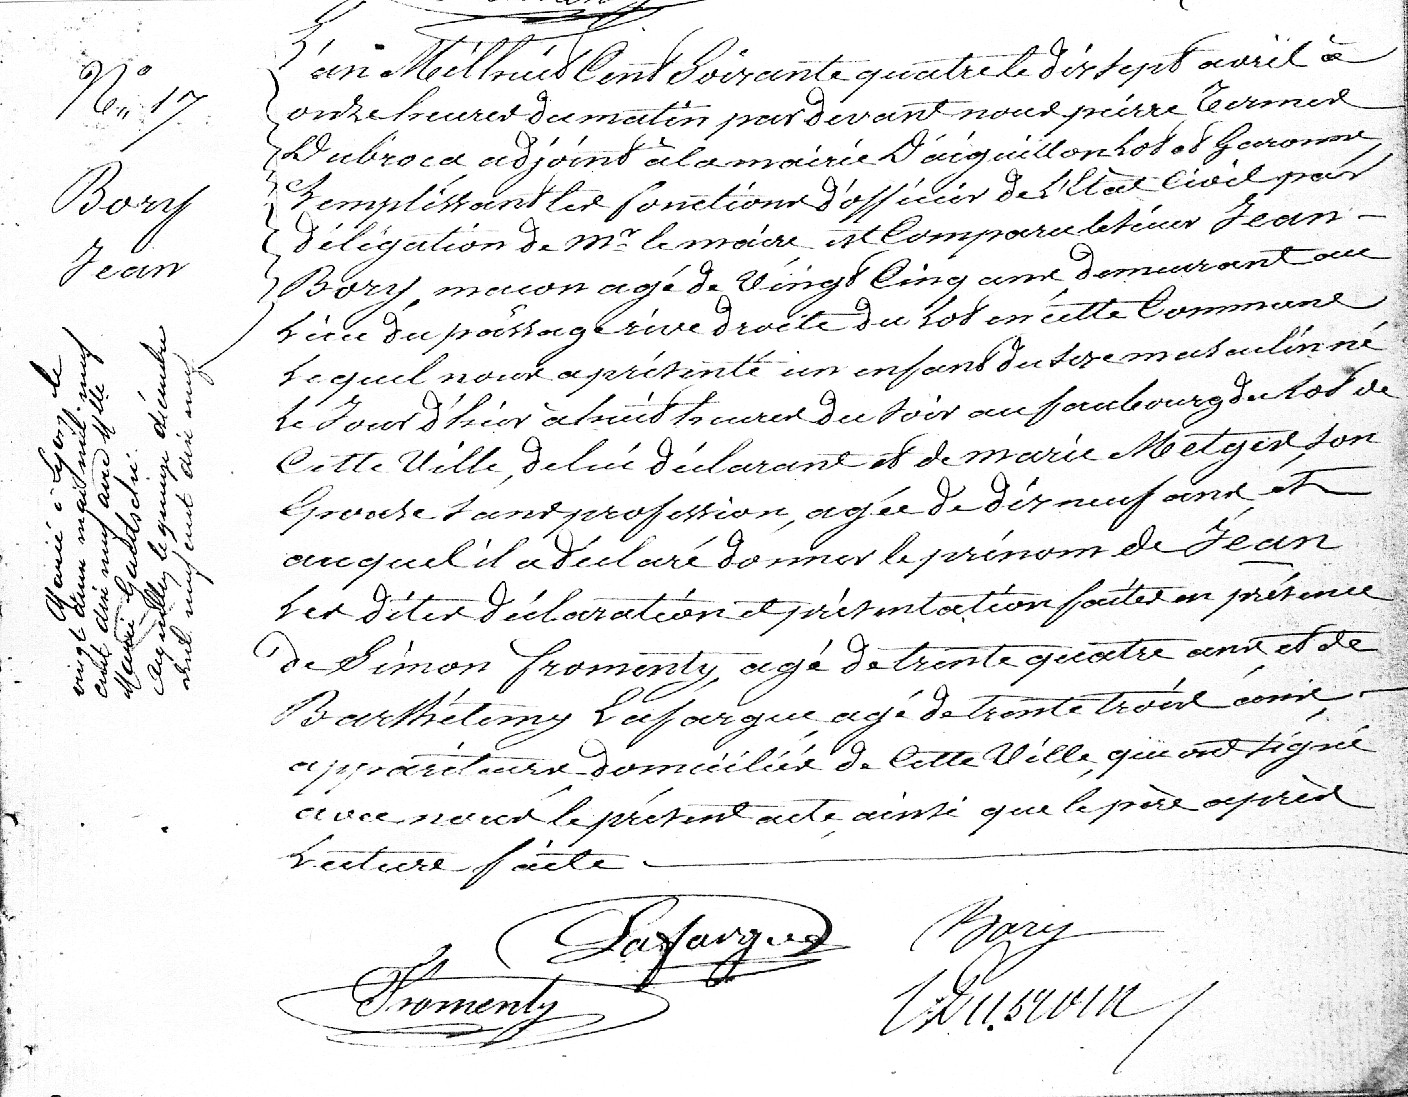 N° 17
Bory
Jean
Marié à Lyon, le
vingt deux mai mil neuf
cent dix neuf avec Mlle
Marie
Aiguillon, le quinze décembre
mil neuf cent dix neuf
L'an Mil huit Cent Soixante quatre le dix sept avril à
onze heures du matin par devant nous pierre Termes
Dubroca adjoint à la mairie D'aiguillon Lot et Garonne,
Remplissant les fonctions d'officier de L'Etat Civil par
délégation de Mr le maire, est Comparu le sieur Jean
Bory, maçon agé de Vingt Cinq ans, demeurant au
Lieu du passage rive droite du Lot en cette Commune
Lequel nous a présenté un enfant du sexe masculin né
Le Jour d'hier à huit heures du soir au faubourg du Lot de
Cette Ville, de lui déclarant et de marie Metges, son
Epouse sans profession, agée de dix neuf ans, et
auquel il a déclaré donner le prénom de Jean
Les dites déclaration et présentation faites en présence
de Simon fromenty, agé de trente quatre ans et de
Barthélemy Lafargue, agé de trente trois ans,
appariteurs domiciliés de Cette Ville, qui ont signé
avec nous le présent acte, ainsi que le père après
Lecture faite
Lafargue
Bory
Fromenty